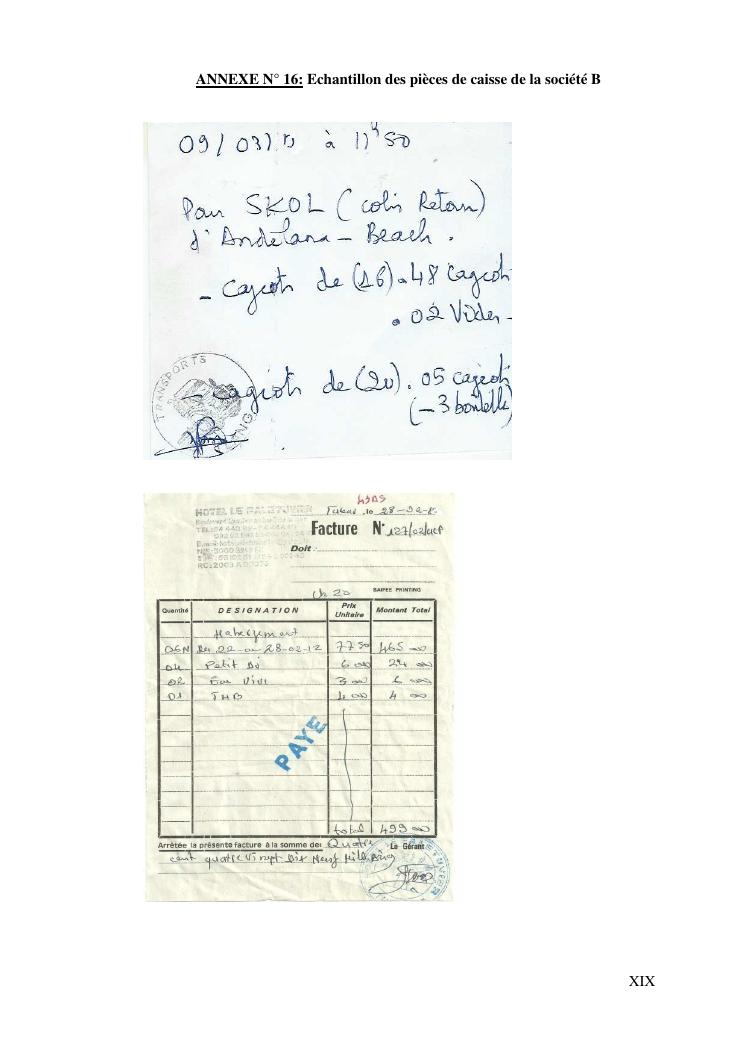 ANNEXE N° 16: Echantillon des pièces de caisse de la société B
à 11H50
Pour SKOL (colis Retour)
d'Andelana - Beach.
- Cageots de (16) . 48 Cageots
. 02 Vides -
- cageots de (20) . 05 cageots
(- 3 bouteilles)
TRANSPORTS
HOTEL LE PALETUVIER
Facture N° 127/02/
Doit :
Ch 20
SAIPEE PRINTING
Quantité DESIGNATION Prix Unitaire Montant Total
Hebergement
06N du 22 au 28-02-12 465 000
04 Petit Dej 6 000 24 000
02 Eau Vive 3 000 6 000
01 THB 4 000 4 000
PAYE
total 499 000
Arrêtée la présente facture à la somme de: Quatre
cent quatre Vingt Dix Neuf Mille Ariary
Le Gérant
XIX